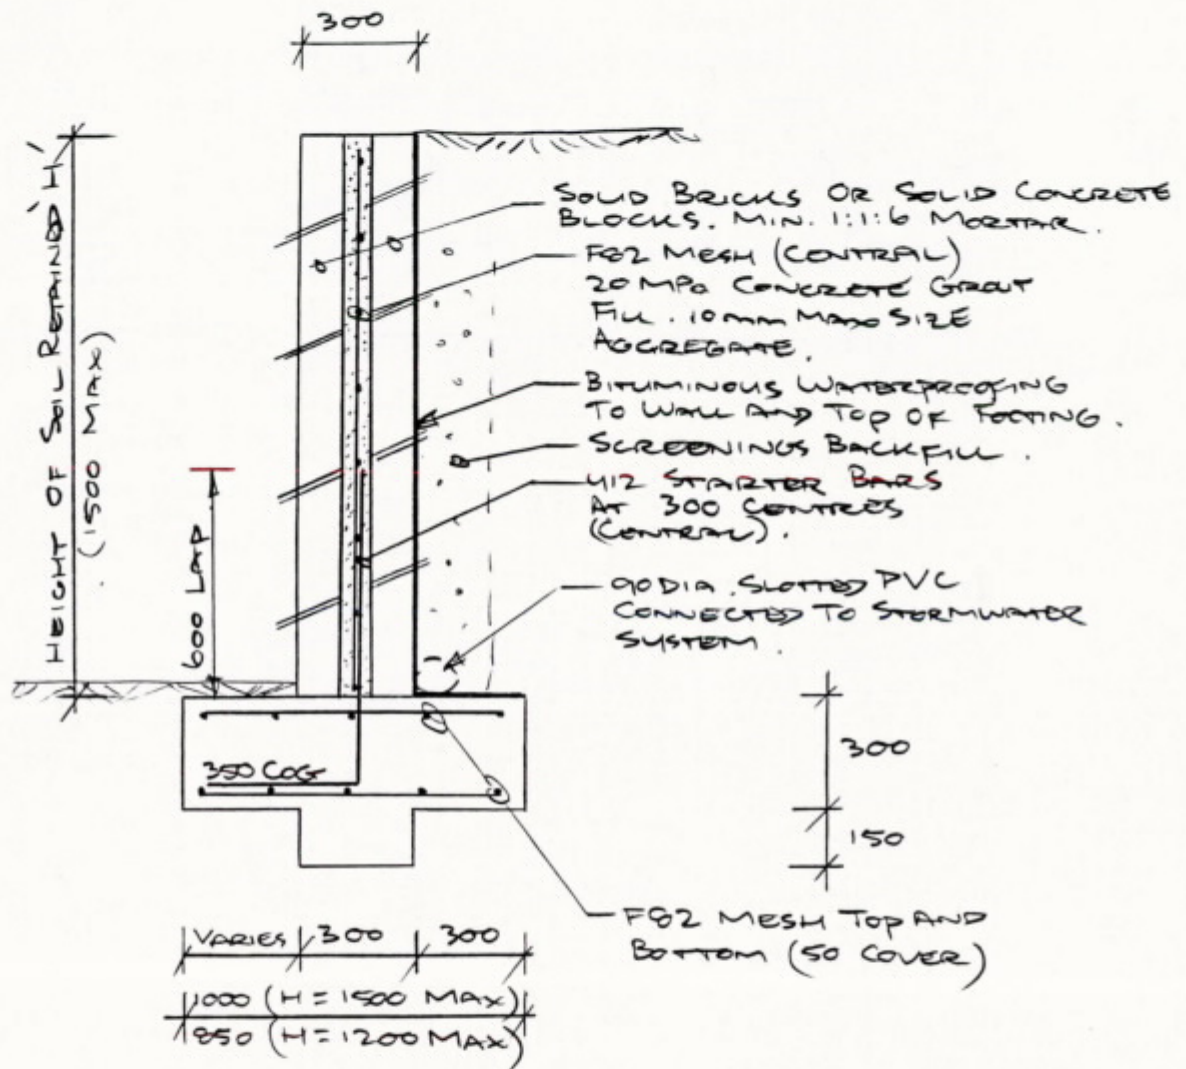 300
HEIGHT OF SOIL RETAINED 'H'
(1500 MAX)
SOLID BRICKS OR SOLID CONCRETE
BLOCKS. MIN. 1:1:6 MORTAR.
F82 MESH (CENTRAL)
20 MPa CONCRETE GROUT
FILL. 10mm MAX SIZE
AGGREGATE.
BITUMINOUS WATERPROOFING
TO WALL AND TOP OF FOOTING.
SCREENINGS BACKFILL.
Y12 STARTER BARS
AT 300 CENTRES
(CENTRAL).
600 LAP
90 DIA. SLOTTED PVC
CONNECTED TO STORMWATER
SYSTEM.
350 COG
300
150
F82 MESH TOP AND
BOTTOM (50 COVER)
VARIES 300 300
1000 (H = 1500 MAX)
850 (H = 1200 MAX)